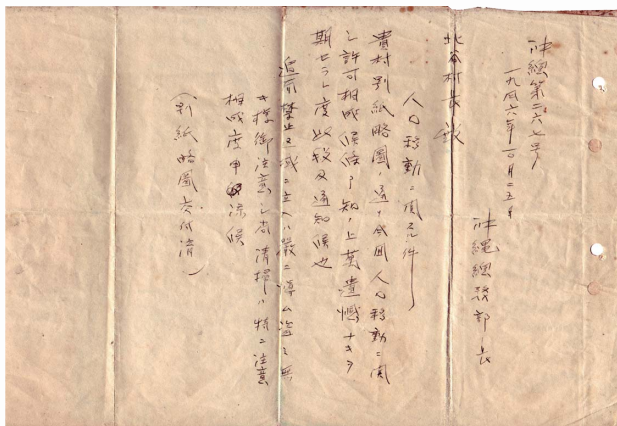 沖總第二六七号
一九四六年一〇月二五日
沖縄總務部長
北谷村長 殿
人口移動ニ関スル件
貴村別紙略圖ノ通リ今囬人口移動ニ関
シ許可相成候條 知ノ上萬遺憾ナキヲ
期セラレ度此段及通知候也
追而禁止区域ニ立入ハ嚴ニ 無
キ樣御注意シ尚清掃ハ特ニ注意
相成度申 候
（別紙略圖交付済）